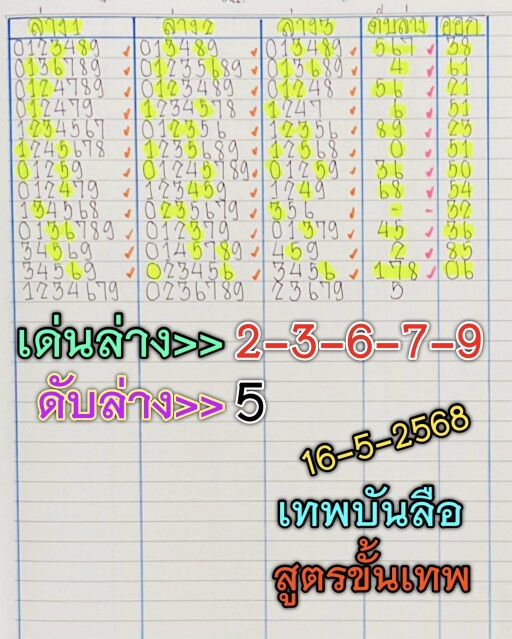 ล่าง 1 ล่าง 2 ล่าง 3 ดับล่าง ออก
013489 ✓ 013489 ✓ 013489 ✓ 567 ✓ 38
0136789 ✓ 01235689 ✓ 013689 ✓ 4 ✓ 61
0124789 ✓ 0123489 ✓ 01248 ✓ 56 ✓ 21
012479 ✓ 1234578 ✓ 1247 ✓ 6 ✓ 51
1234567 ✓ 012356 ✓ 12356 ✓ 89 ✓ 23
1245678 ✓ 1235689 ✓ 12568 ✓ 0 ✓ 51
01259 ✓ 01245789 ✓ 01259 ✓ 36 ✓ 50
012479 ✓ 123459 ✓ 1249 ✓ 68 ✓ 54
134568 ✓ 0235679 ✓ 356 ✓ - - 32
0136789 ✓ 012379 ✓ 01379 ✓ 45 ✓ 36
34569 ✓ 0145789 ✓ 459 ✓ 2 ✓ 85
34569 ✓ 023456 ✓ 3456 ✓ 178 ✓ 06
1234679 0236789 23679 5
เด่นล่าง>> 2-3-6-7-9
ดับล่าง>> 5
16-5-2568
เทพบันลือ
สูตรขั้นเทพ